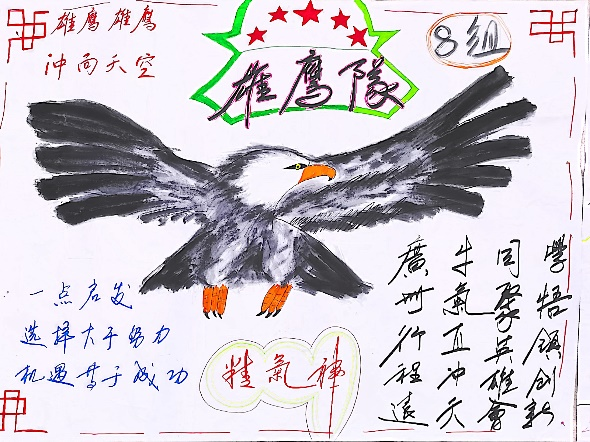 雄鹰 雄鹰
冲向天空
雄鹰隊
8组
一点启发
选择大于努力
机遇等于成功
精氣神
學悟創新
同聚英雄會
牛氣直冲天
廣州行程遠